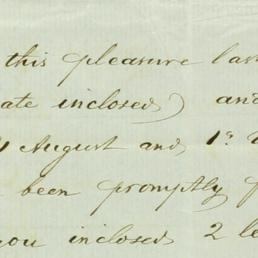 this pleasure las
ate inclosed) and
August and 1st
been promptly p
you inclosed 2 le